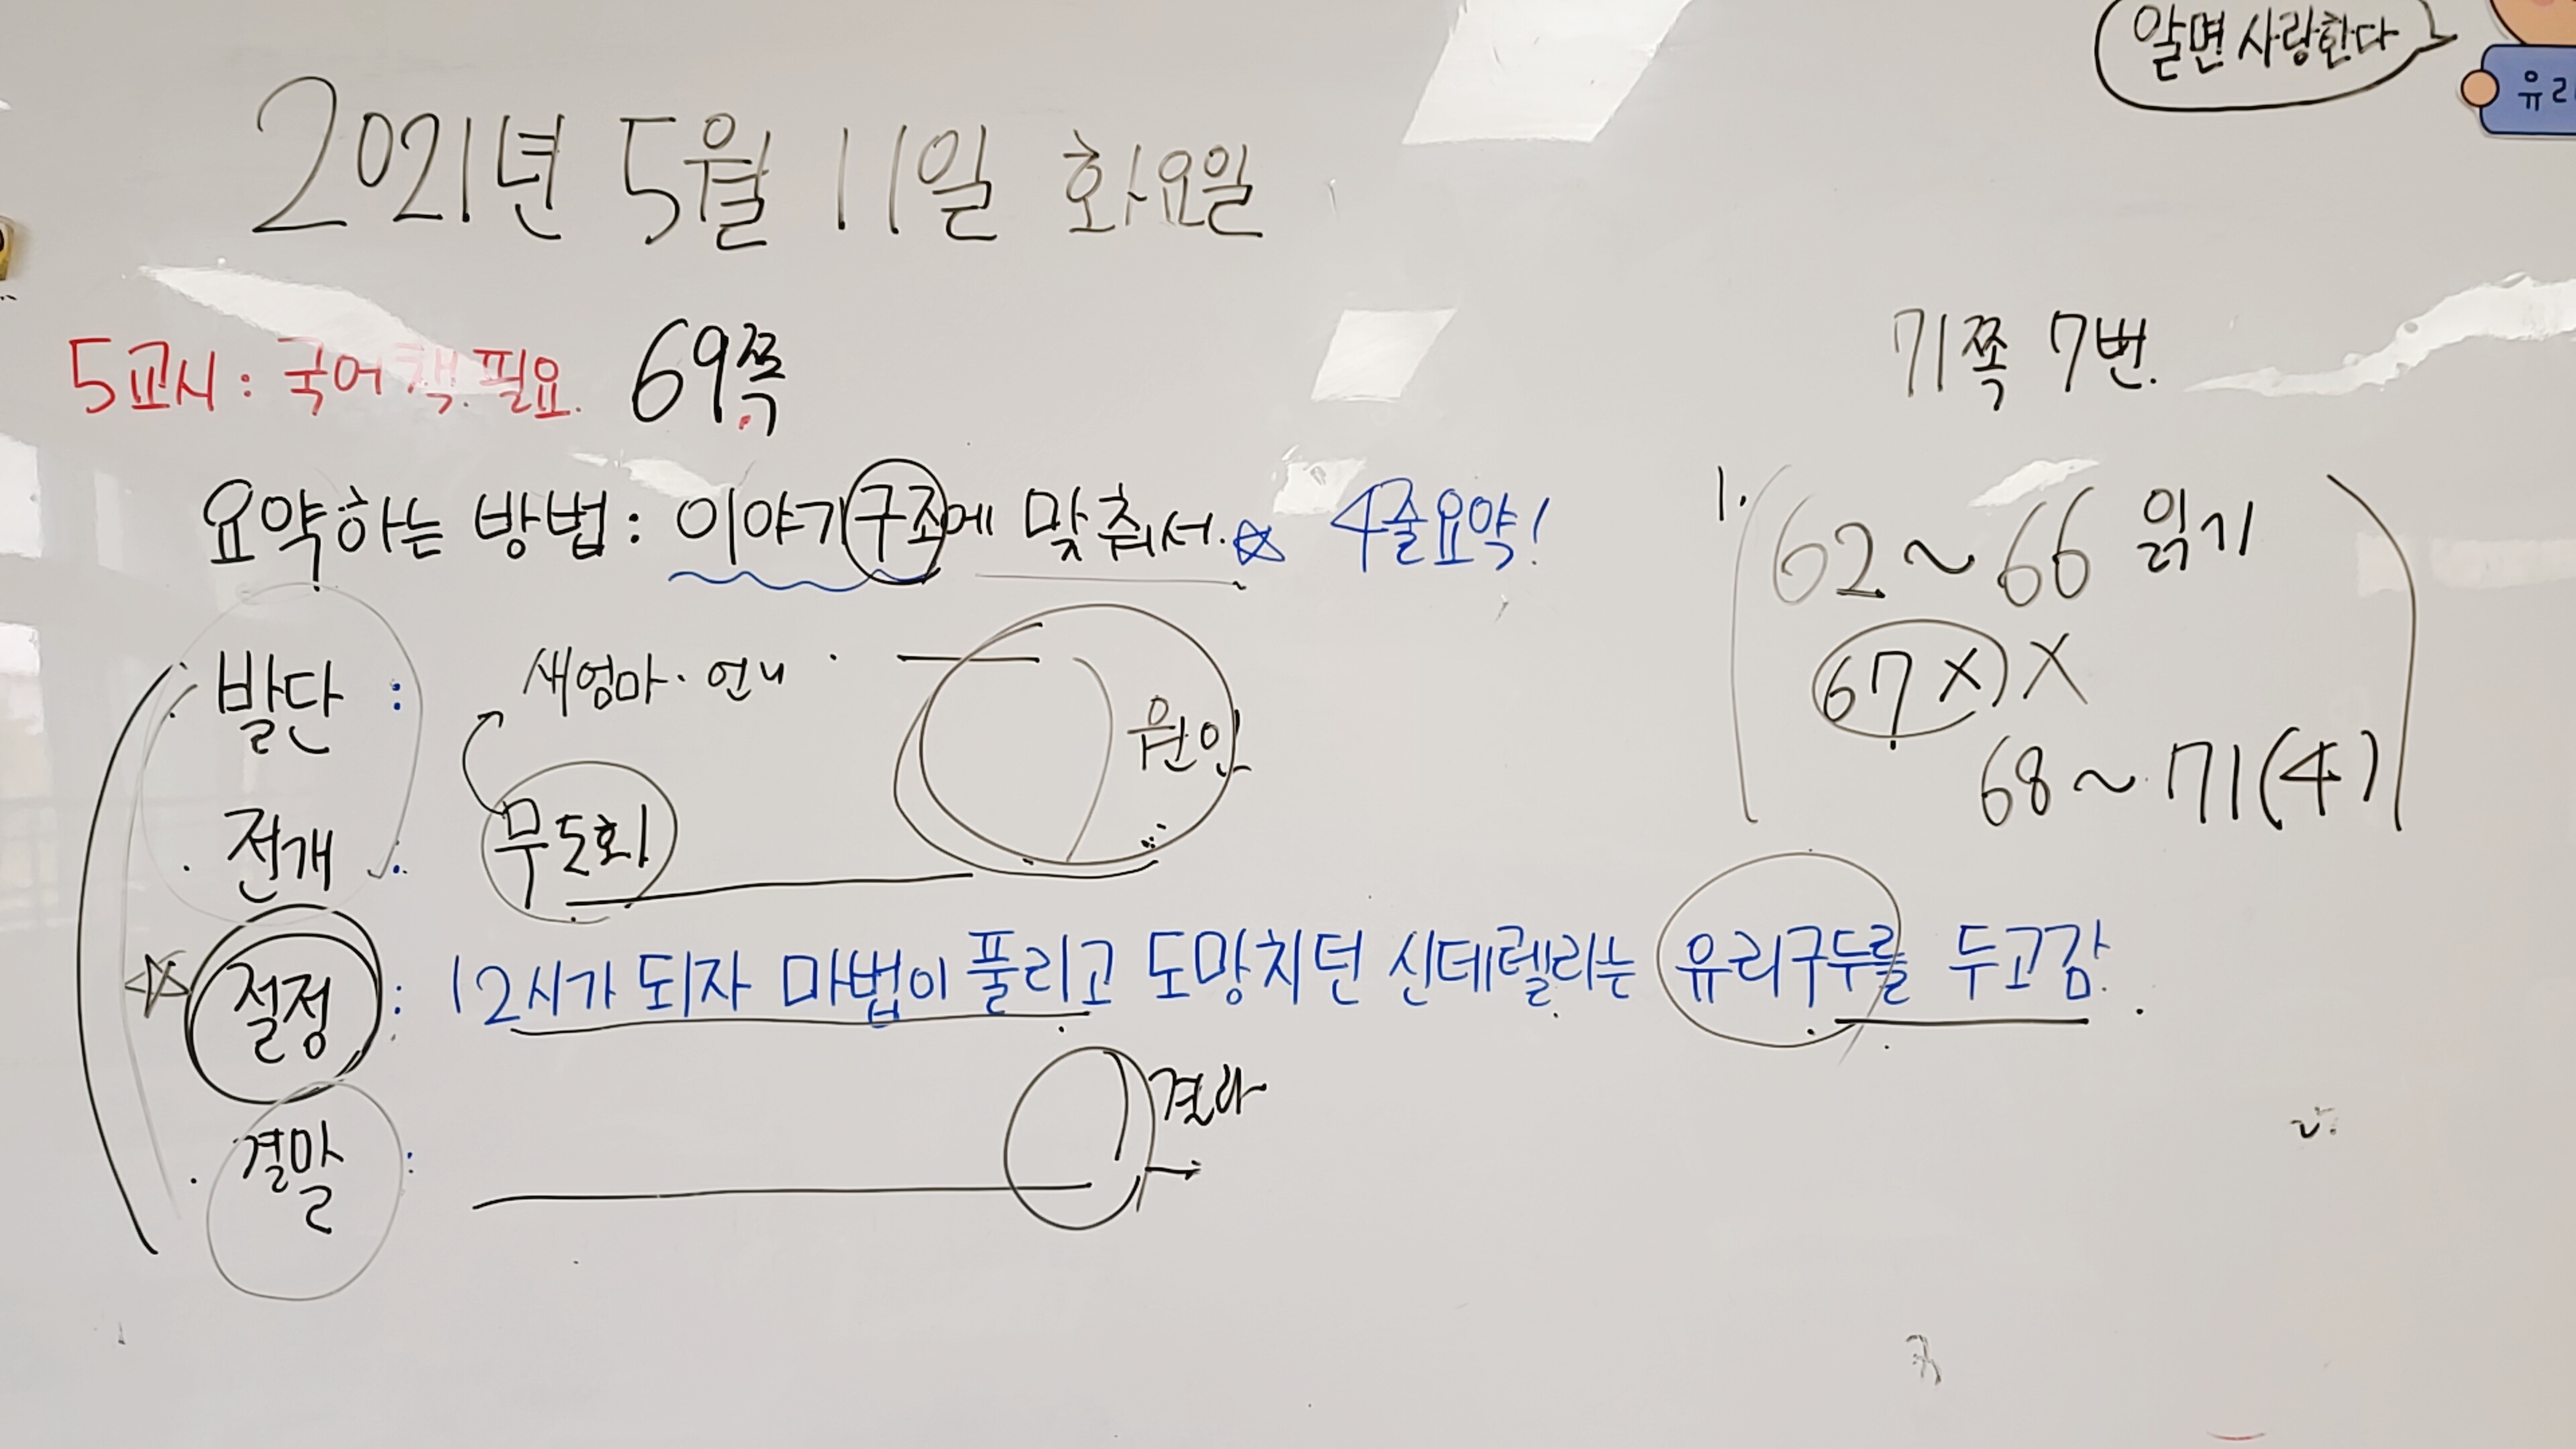 알면 사랑한다
유리
2021년 5월 11일 화요일
5교시: 국어책 필요. 69쪽
요약하는 방법: 이야기구조에 맞춰서. ☆ 4줄요약!
발단 : 새엄마. 언니
원인
전개 : 무도회
☆ 절정 : 12시가 되자 마법이 풀리고 도망치던 신데렐라는 유리구두를 두고감.
결말 :
결과
71쪽 7번.
1. 62~66 읽기
67 X) X
68~71(4)